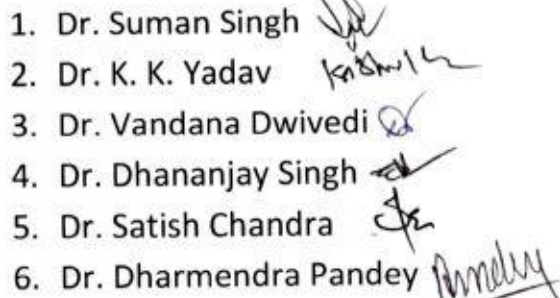 1. Dr. Suman Singh
2. Dr. K. K. Yadav
3. Dr. Vandana Dwivedi
4. Dr. Dhananjay Singh
5. Dr. Satish Chandra
6. Dr. Dharmendra Pandey